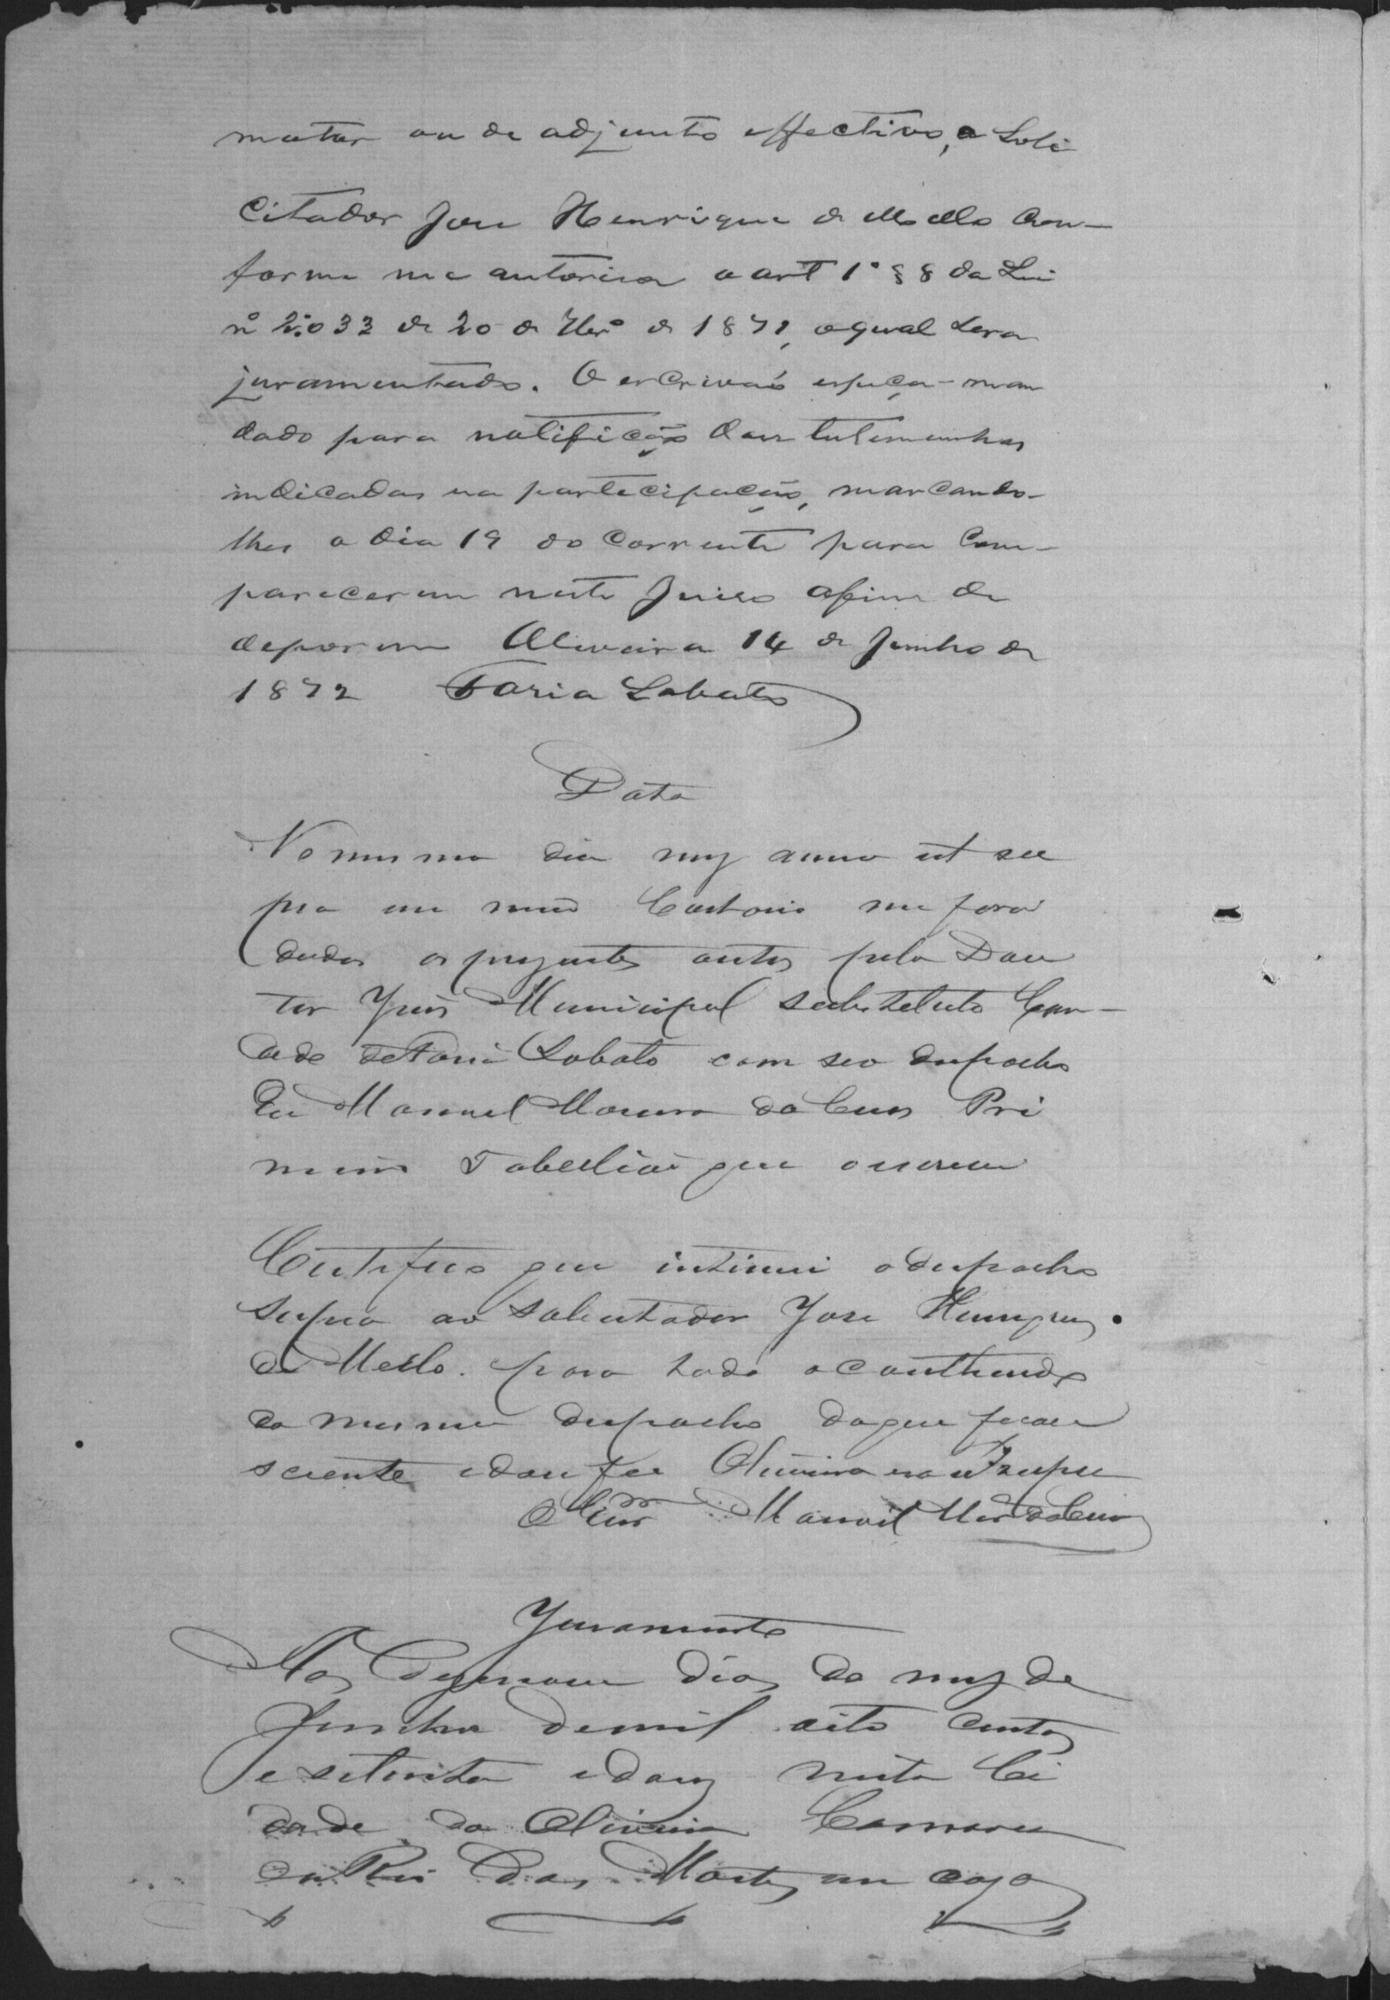 motor ou de adjunto effectivo, o Soli
citador José Henrique de Mello con-
forme me autorisa o art 1º § 8 da Lei
nº 2.033 de 20 de 7brº de 1871, o qual sera
juramentado. O escrivaõ espeça-man
dado para notificação das testemunhas
indicadas na participação, marcando-
lhes o dia 19 do corrente para com-
parecerem neste Juiso afim de
deporem Oliveira 14 de Junho de
1872 Faria Lobato
Data
No mesmo dia mez anno ut su
pra em meu Cartorio me foraõ
dados os prezentes autos pelo Dou
tor Juis Municipal substituto
de Faria Lobato com seo despacho
Eu Manoel da Cruz Pri
meiro Tabelliaõ que o escrevi
Certifico que intimei o despacho
supra ao solicitador Jose Henriques
de Mello. para todo o conthendo
do mesmo despacho do que ficou
sciente e dou fee Oliveira era ut supra
Manoel da Cruz
Juramento
Aos dezenove dias do mez de
Junho de mil oito centos
e setenta e dous nesta Ci
dade da Oliveira Comarca
do Rio das Mortes em caza